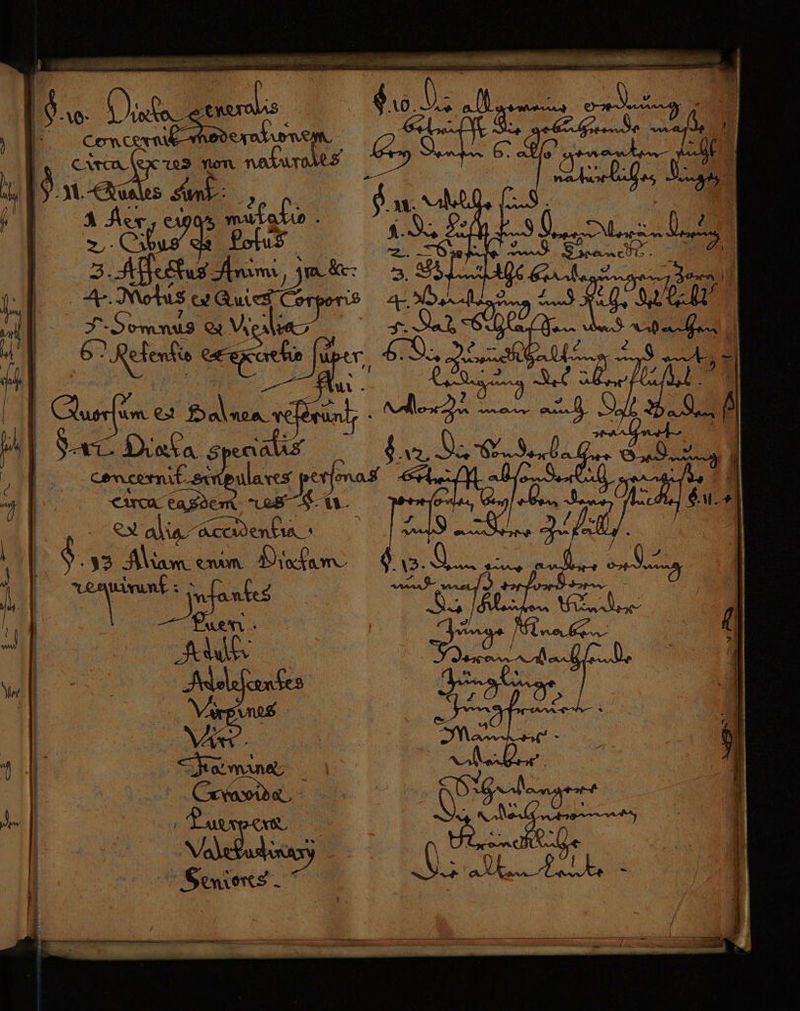 §. 10. Diæta generalis
concernit moderationem
circa sex res non naturales
§. 11. Quales sunt:
1 Aer, eiusque mutatio.
2. Cibus et Potus
3. Affectus Animi, ira &c:
4. Motus et Quies Corporis
5. Somnus et Vigiliæ
6. Retentio et excretio super
flui.
Quorsum et Balnea referunt.
§. 12. Diæta specialis
concernit singulares personas
circa easdem res §. 11.
et alia accidentia.
§. 13 Aliam enim Diætam
requirunt: infantes
Pueri.
Adulti
Adolescentes
Virgines
Viri.
Fœminæ
Gravidæ,
Puerperæ
Valetudinarij
Seniores.
§ 10. Die allgemeine ordnung
betrifft die
6. also genanten nicht
natürliche Dinge
§. 11. Welche sind.
1. Die Lufft und deren Veränderung
2. Speise und Tranck.
3. Gemüths Bewegungen, Zorn
4. Bewegung und Ruhe des Leibs
5. Das Schlaffen und Wachen
6. Die Zurückhaltung und
des überflüssigen.
Worzu man auch das Baden
rechnet
§. 12. Die Sonderbahre Ordnung
betrifft absonderlich gewisse
personen, bey eben denen stücken §. 11.
und andere Zufälle.
§. 13. Denn eine andere ordnung
erfordern
Die kleinen Kinder
Junge Knaben
Erwachsende
Jünglinge
Jungfrauen.
Männer
Weiber
Schwangere
Die Wöchnerinnen
Kränckliche
Die alten Leute